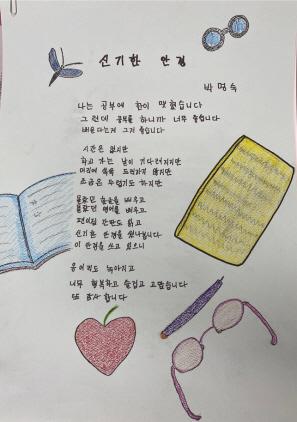 신기한 안경
박명숙
나는 공부에 한이 맺혔습니다
그런데 공부를 하니까 너무 좋습니다
배운다는게 그저 좋습니다
시간은 없지만
학교 가는 날이 기다려지지만
머리에 쏙쏙 드러가지 않지만
조금은 두렵기도 하지만
몰랐던 한글을 배우고
몰랐던 영어를 배우고
편의점 간판도 읽고
신기한 안경을 썼나봅니다
이 안경을 쓰고 있으니
응어리도 녹아지고
너무 행복하고 즐겁고 고맙습니다
또 감사 합니다